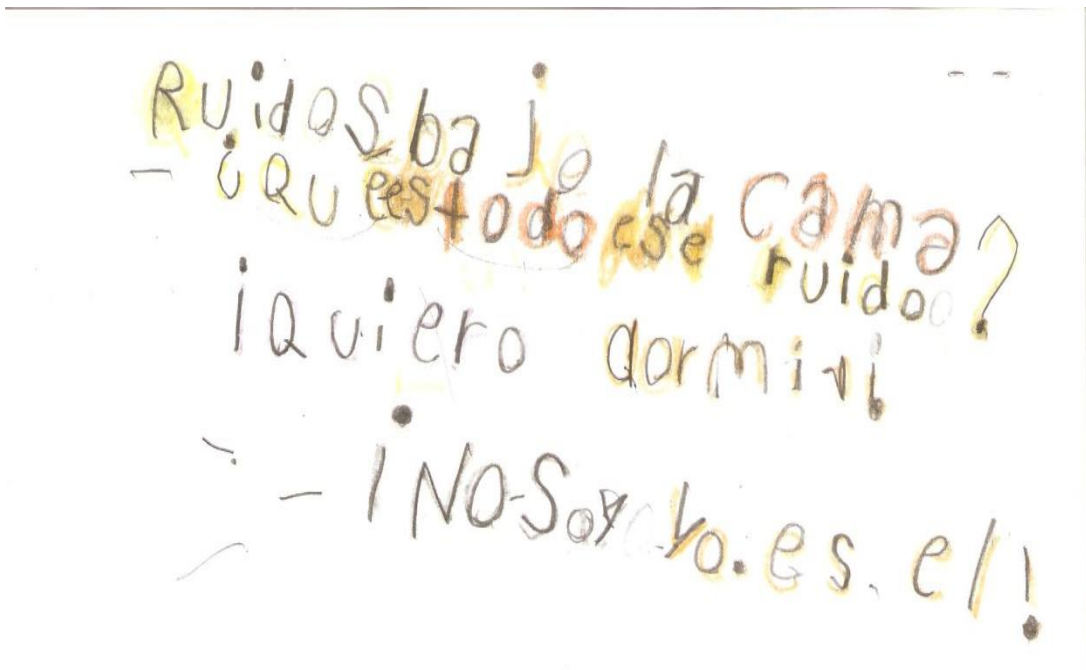 Ruidos bajo la cama
- ¿Qu ees todo ese ruido?
¡Quiero dormir!
- ¡NO-Soy yo.es.el!